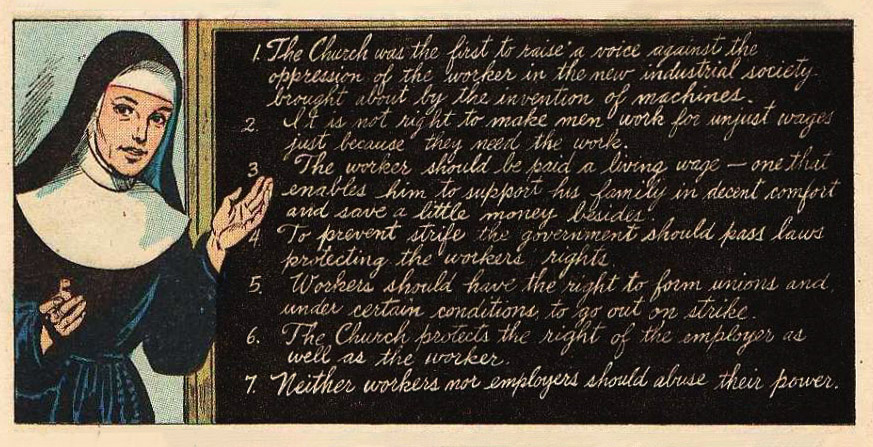 1. The Church was the first to raise a voice against the
oppression of the worker in the new industrial society
brought about by the invention of machines.
2. It is not right to make men work for unjust wages
just because they need the work.
3 The worker should be paid a living wage — one that
enables him to support his family in decent comfort
and save a little money besides.
4 To prevent strife the government should pass laws
protecting the workers' rights.
5. Workers should have the right to form unions and,
under certain conditions, to go out on strike.
6. The Church protects the right of the employer as
well as the worker.
7. Neither workers nor employers should abuse their power.